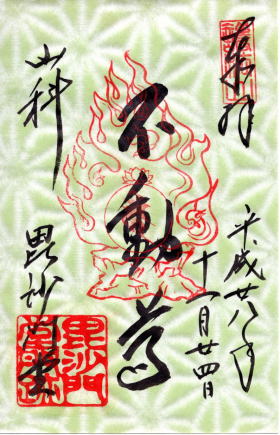 奉拝
平成廿八年
十一月廿四日
不動尊
山科
毘沙門堂
毘沙門